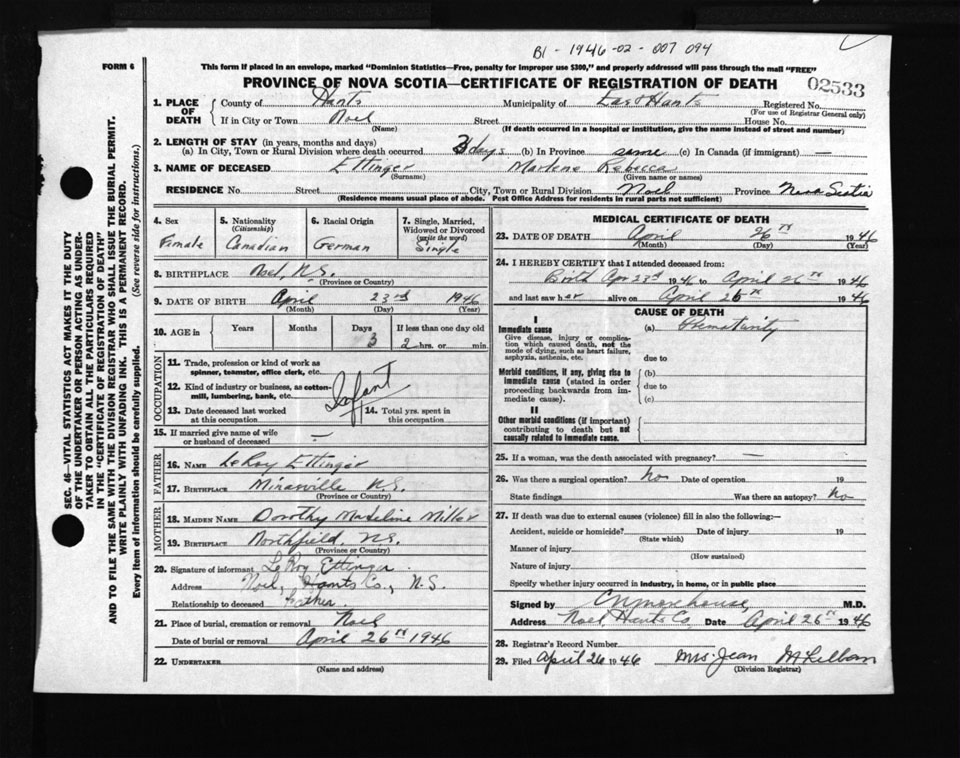 B1 - 1946-02-007094
FORM 6
This form if placed in an envelope, marked "Dominion Statistics—Free, penalty for improper use $300," and properly addressed will pass through the mail "FREE"
PROVINCE OF NOVA SCOTIA—CERTIFICATE OF REGISTRATION OF DEATH
02533
1. PLACE OF DEATH
County of Hants Municipality of East Hants Registered No.
(For use of Registrar General only)
If in City or Town Noel Street House No.
(Name) (If death occurred in a hospital or institution, give the name instead of street and number)
2. LENGTH OF STAY (in years, months and days)
(a) In City, Town or Rural Division where death occurred 3 days (b) In Province same (c) In Canada (if immigrant) —
3. NAME OF DECEASED Ettinger Marlene Rebecca
(Surname) (Given name or names)
RESIDENCE No. Street City, Town or Rural Division Noel Province Nova Scotia
(Residence means usual place of abode. Post Office Address for residents in rural parts not sufficient)
4. Sex Female
5. Nationality (Citizenship) Canadian
6. Racial Origin German
7. Single, Married, Widowed or Divorced (write the word) Single
8. BIRTHPLACE Noel, N.S.
(Province or Country)
9. DATE OF BIRTH April 23rd 1946
(Month) (Day) (Year)
10. AGE in Years Months Days 3 If less than one day old 2 hrs. or min.
OCCUPATION
11. Trade, profession or kind of work as spinner, teamster, office clerk, etc.
12. Kind of industry or business, as cotton-mill, lumbering, bank, etc.
Infant
13. Date deceased last worked at this occupation
14. Total yrs. spent in this occupation
15. If married give name of wife or husband of deceased —
FATHER
16. NAME LeRoy Ettinger
17. BIRTHPLACE Minasville N.S.
(Province or Country)
MOTHER
18. MAIDEN NAME Dorothy Madeline Miller
19. BIRTHPLACE Northfield, N.S.
(Province or Country)
20. Signature of informant LeRoy Ettinger
Address Noel, Hants Co., N.S.
Relationship to deceased Father
21. Place of burial, cremation or removal Noel
Date of burial or removal April 26th 1946
22. UNDERTAKER
(Name and address)
MEDICAL CERTIFICATE OF DEATH
23. DATE OF DEATH April 26th 1946
(Month) (Day) (Year)
24. I HEREBY CERTIFY that I attended deceased from:
Birth Apr 23rd 1946 to April 26th 1946
and last saw her alive on April 26th 1946
CAUSE OF DEATH
I
Immediate cause (a) Prematurity
Give disease, injury or complication which caused death, not the mode of dying, such as heart failure, asphyxia, asthenia, etc.
due to
Morbid conditions, if any, giving rise to immediate cause (stated in order proceeding backwards from immediate cause).
(b)
due to
(c)
II
Other morbid conditions (if important) contributing to death but not causally related to immediate cause.
25. If a woman, was the death associated with pregnancy? —
26. Was there a surgical operation? No Date of operation 19
State findings Was there an autopsy? No
27. If death was due to external causes (violence) fill in also the following:—
Accident, suicide or homicide? Date of injury 19
(State which)
Manner of injury
(How sustained)
Nature of injury
Specify whether injury occurred in industry, in home, or in public place
Signed by CN Morehouse M.D.
Address Noel, Hants Co, Date April 26th 1946
28. Registrar's Record Number
29. Filed April 26 1946 Mrs. Jean
(Division Registrar)
SEC. 46—VITAL STATISTICS ACT MAKES IT THE DUTY
OF THE UNDERTAKER OR PERSON ACTING AS UNDER-
TAKER TO OBTAIN ALL THE PARTICULARS REQUIRED
IN THE "CERTIFICATE OF REGISTRATION OF DEATH"
AND TO FILE THE SAME WITH THE DIVISION REGISTRAR WHO SHALL ISSUE THE BURIAL PERMIT.
WRITE PLAINLY WITH UNFADING INK. THIS IS A PERMANENT RECORD.
Every item of information should be carefully supplied. (See reverse side for instructions.)